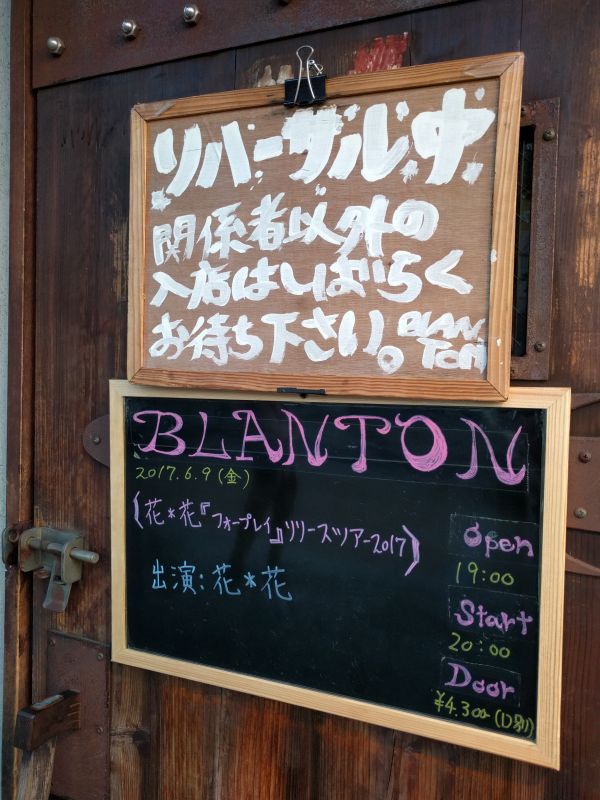 リハーサル中
関係者以外の
入店はしばらく
お待ち下さい。BLAN
TON
BLANTON
2017.6.9(金)
(花*花『フォープレイ』リリースツアー2017)
出演:花*花
Open
19:00
Start
20:00
Door
¥4.300(D別)